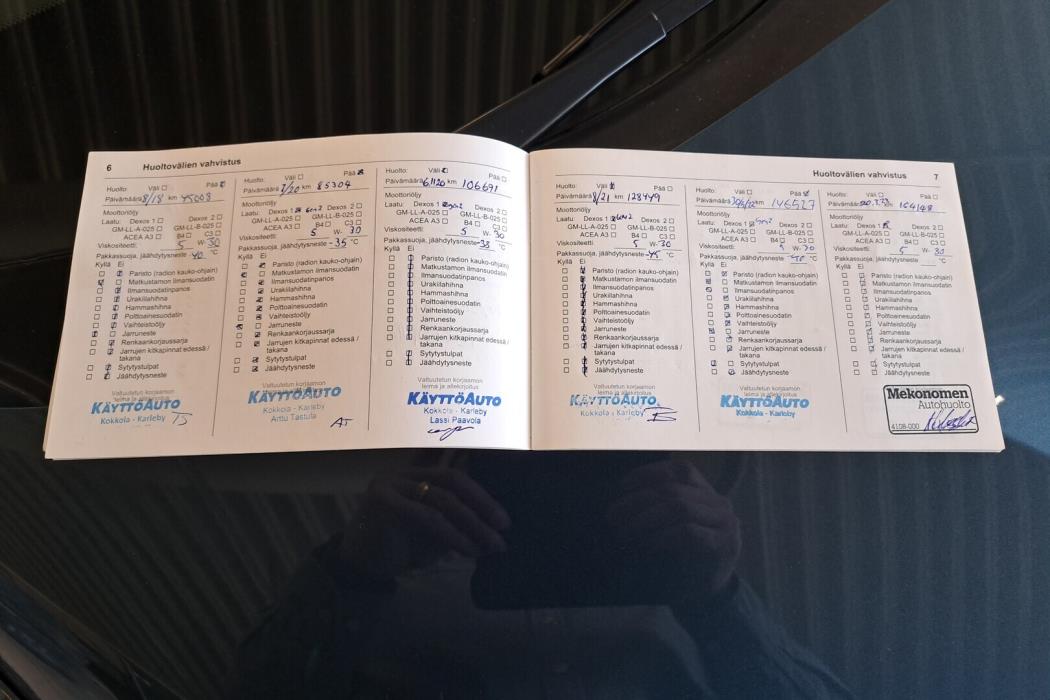 6 Huoltovälien vahvistus
Huolto: Väli Pää
Päivämäärä 8/18 km 45008
Moottoriöljy
Laatu: Dexos 1 Dexos 2
GM-LL-A-025 GM-LL-B-025
ACEA A3 B4 C3
Viskositeetti: 5 W- 30
Pakkassuoja, jäähdytysneste 40 °C
Kyllä Ei
Paristo (radion kauko-ohjain)
Matkustamon ilmansuodatin
Ilmansuodatinpanos
Urakiilahihna
Hammashihna
Polttoainesuodatin
Vaihteistoöljy
Jarruneste
Renkaankorjaussarja
Jarrujen kitkapinnat edessä /
takana
Sytytystulpat
Jäähdytysneste
Valtuutetun korjaamon
leima ja allekirjoitus
KÄYTTÖAUTO
Kokkola - Karleby
Huolto: Väli Pää
Päivämäärä 7/20 km 85304
Moottoriöljy
Laatu: Dexos 1 Gen2 Dexos 2
GM-LL-A-025 GM-LL-B-025
ACEA A3 B4 C3
Viskositeetti: 5 W- 30
Pakkassuoja, jäähdytysneste -35 °C
Kyllä Ei
Paristo (radion kauko-ohjain)
Matkustamon ilmansuodatin
Ilmansuodatinpanos
Urakiilahihna
Hammashihna
Polttoainesuodatin
Vaihteistoöljy
Jarruneste
Renkaankorjaussarja
Jarrujen kitkapinnat edessä /
takana
Sytytystulpat
Jäähdytysneste
Valtuutetun korjaamon
leima ja allekirjoitus
KÄYTTÖAUTO
Kokkola - Karleby
Arttu Tastula
Huolto: Väli Pää
Päivämäärä km 106691
Moottoriöljy
Laatu: Dexos 1 gen2 Dexos 2
GM-LL-A-025 GM-LL-B-025
ACEA A3 B4 C3
Viskositeetti: 5 W- 30
Pakkassuoja, jäähdytysneste -38 °C
Kyllä Ei
Paristo (radion kauko-ohjain)
Matkustamon ilmansuodatin
Ilmansuodatinpanos
Urakiilahihna
Hammashihna
Polttoainesuodatin
Vaihteistoöljy
Jarruneste
Renkaankorjaussarja
Jarrujen kitkapinnat edessä /
takana
Sytytystulpat
Jäähdytysneste
Valtuutetun korjaamon
leima ja allekirjoitus
KÄYTTÖAUTO
Kokkola - Karleby
Lassi Paavola
Huoltovälien vahvistus 7
Huolto: Väli Pää
Päivämäärä 8/21 km 128449
Moottoriöljy
Laatu: Dexos 1 Gen2 Dexos 2
GM-LL-A-025 GM-LL-B-025
ACEA A3 B4 C3
Viskositeetti: 5 W- 30
Pakkassuoja, jäähdytysneste -45 °C
Kyllä Ei
Paristo (radion kauko-ohjain)
Matkustamon ilmansuodatin
Ilmansuodatinpanos
Urakiilahihna
Hammashihna
Polttoainesuodatin
Vaihteistoöljy
Jarruneste
Renkaankorjaussarja
Jarrujen kitkapinnat edessä /
takana
Sytytystulpat
Jäähdytysneste
Valtuutetun korjaamon
leima ja allekirjoitus
KÄYTTÖAUTO
Kokkola - Karleby
Huolto: Väli Pää
Päivämäärä km 146527
Moottoriöljy
Laatu: Dexos 1 Gen2 Dexos 2
GM-LL-A-025 GM-LL-B-025
ACEA A3 B4 C3
Viskositeetti: 5 W- 30
Pakkassuoja, jäähdytysneste -40 °C
Kyllä Ei
Paristo (radion kauko-ohjain)
Matkustamon ilmansuodatin
Ilmansuodatinpanos
Urakiilahihna
Hammashihna
Polttoainesuodatin
Vaihteistoöljy
Jarruneste
Renkaankorjaussarja
Jarrujen kitkapinnat edessä /
takana
Sytytystulpat
Jäähdytysneste
Valtuutetun korjaamon
leima ja allekirjoitus
KÄYTTÖAUTO
Kokkola - Karleby
Huolto: Väli Pää
Päivämäärä km 164148
Moottoriöljy
Laatu: Dexos 1 Dexos 2
GM-LL-A-025 GM-LL-B-025
ACEA A3 B4 C3
Viskositeetti: 5 W- 30
Pakkassuoja, jäähdytysneste °C
Kyllä Ei
Paristo (radion kauko-ohjain)
Matkustamon ilmansuodatin
Ilmansuodatinpanos
Urakiilahihna
Hammashihna
Polttoainesuodatin
Vaihteistoöljy
Jarruneste
Renkaankorjaussarja
Jarrujen kitkapinnat edessä /
takana
Sytytystulpat
Jäähdytysneste
Mekonomen
Autohuolto
4108-000